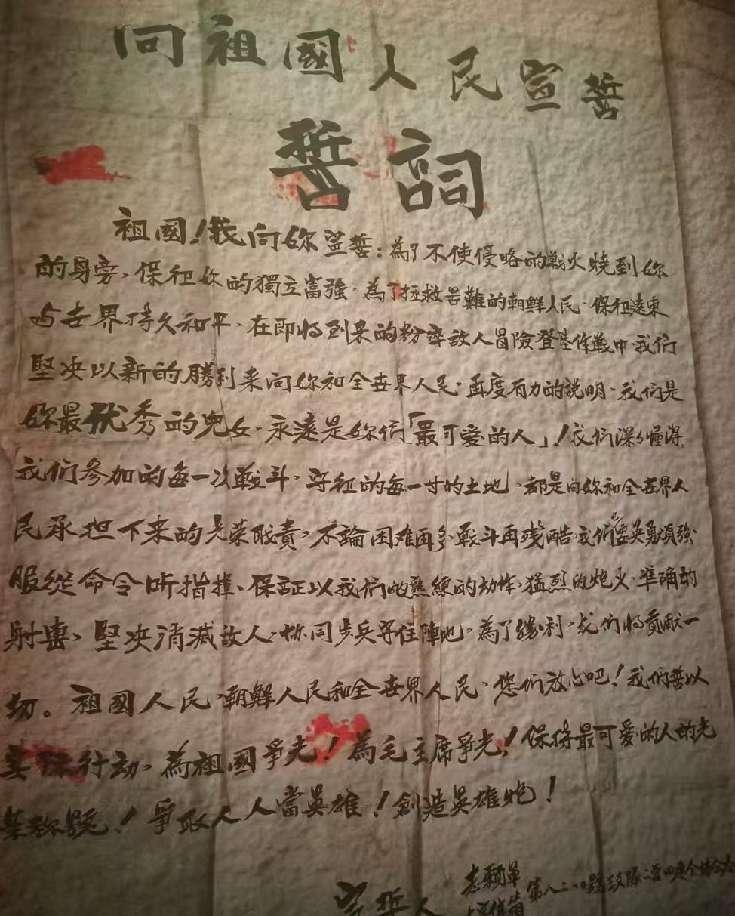 向祖國人民宣誓
誓詞
祖國!我向你宣誓:為了不使侵略的戰火燒到你
的身旁,保衽你的獨立富強,為了拯救苦難的朝鮮人民,保衽遠東
与世界持久和平,在即將到來的粉碎敌人冒險登陸作战中,我們
堅决以新的勝利來向你和全世界人民,再度有力的說明,我們是
你最优秀的兒女,永遠是你們「最可愛的人」!我們深深懂得
我們參加的每一次戰斗,守衽的每一寸的土地,都是向你和全世界人
民承担下来的光荣職責,不論困难再多戰斗再残酷,我們英勇頑強
服從命令听指揮,保証以我們的熟練的动作,猛烈的炮火,準确的
射击,堅决消滅敌人,协同步兵守住陣地,為了勝利,我們將貢献一
切。祖國人民,朝鮮人民和全世界人民,您們放心吧!我們要以
行动,為祖國爭光!為毛主席爭光!保持最可愛的人的光
荣称號!爭取人人當英雄!創造英雄炮!
宣誓人
志願軍